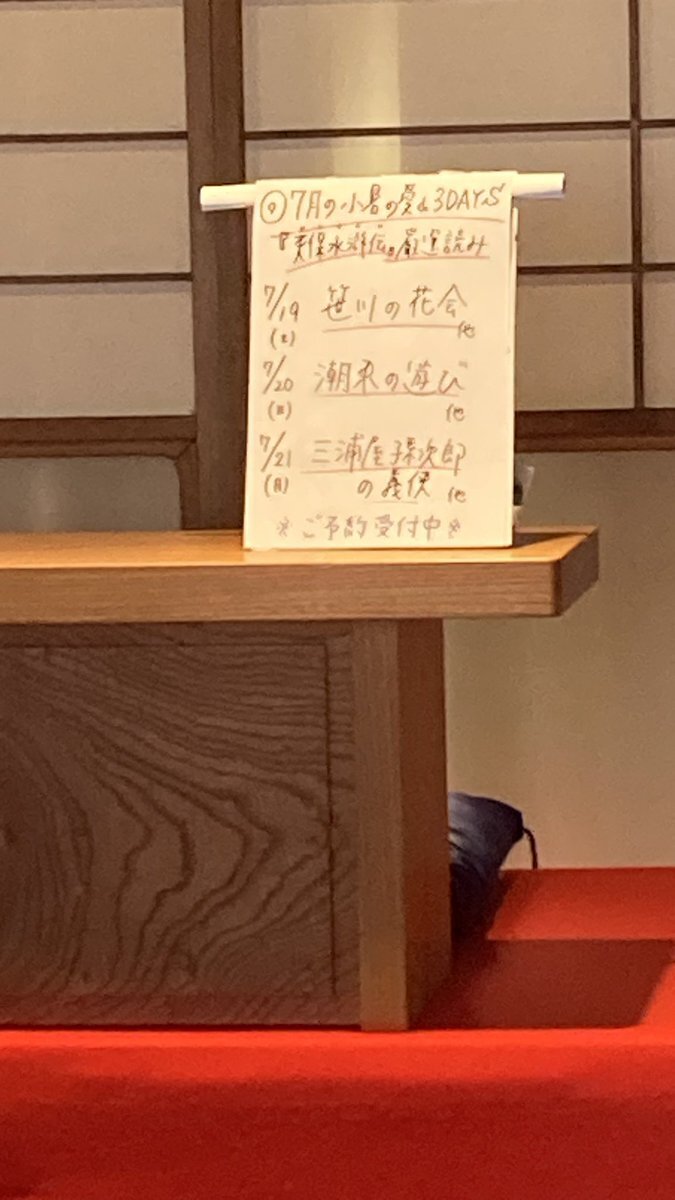 ㋨ 7月の小暑の会 3DAYS
『天保水滸伝』厳選読み
7/19 笹川の花会
(土) 他
7/20 潮来の遊び
(日) 他
7/21 三浦屋孫次郎
(月) の義侠 他
※ご予約受付中※